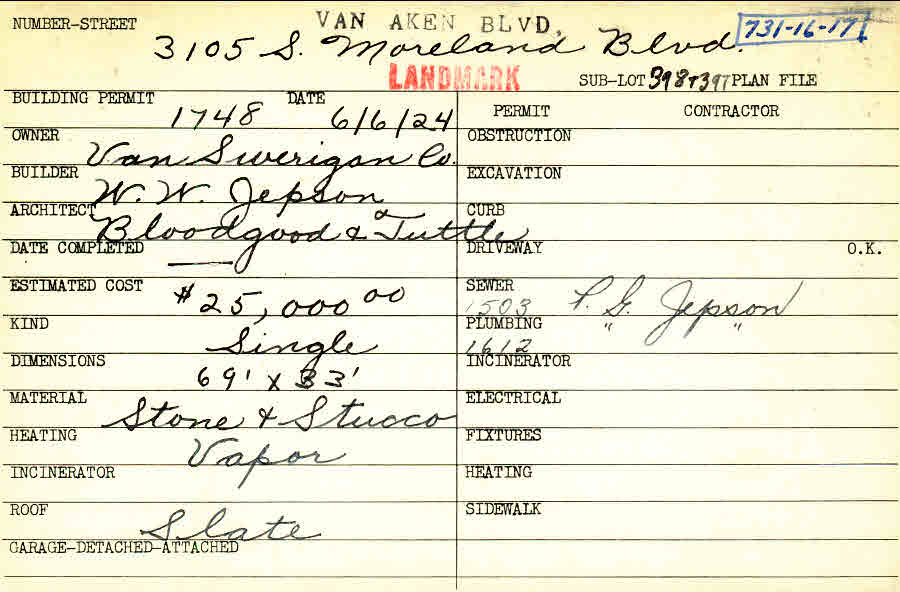 VAN AKEN BLVD.
NUMBER-STREET 3105 S. Moreland Blvd. 731-16-17
LANDMARK SUB-LOT 398+397 PLAN FILE
BUILDING PERMIT 1748 DATE 6/6/24 PERMIT CONTRACTOR
OWNER Van Swerigan Co. OBSTRUCTION
BUILDER W. W. Jepson EXCAVATION
ARCHITECT Bloodgood & Tuttle CURB
DATE COMPLETED — DRIVEWAY O.K.
ESTIMATED COST $25,000 00 SEWER 1503 P. G. Jepson
KIND Single PLUMBING 1612 " "
DIMENSIONS 69' x 33' INCINERATOR
MATERIAL Stone & Stucco ELECTRICAL
HEATING Vapor FIXTURES
INCINERATOR HEATING
ROOF Slate SIDEWALK
GARAGE-DETACHED-ATTACHED